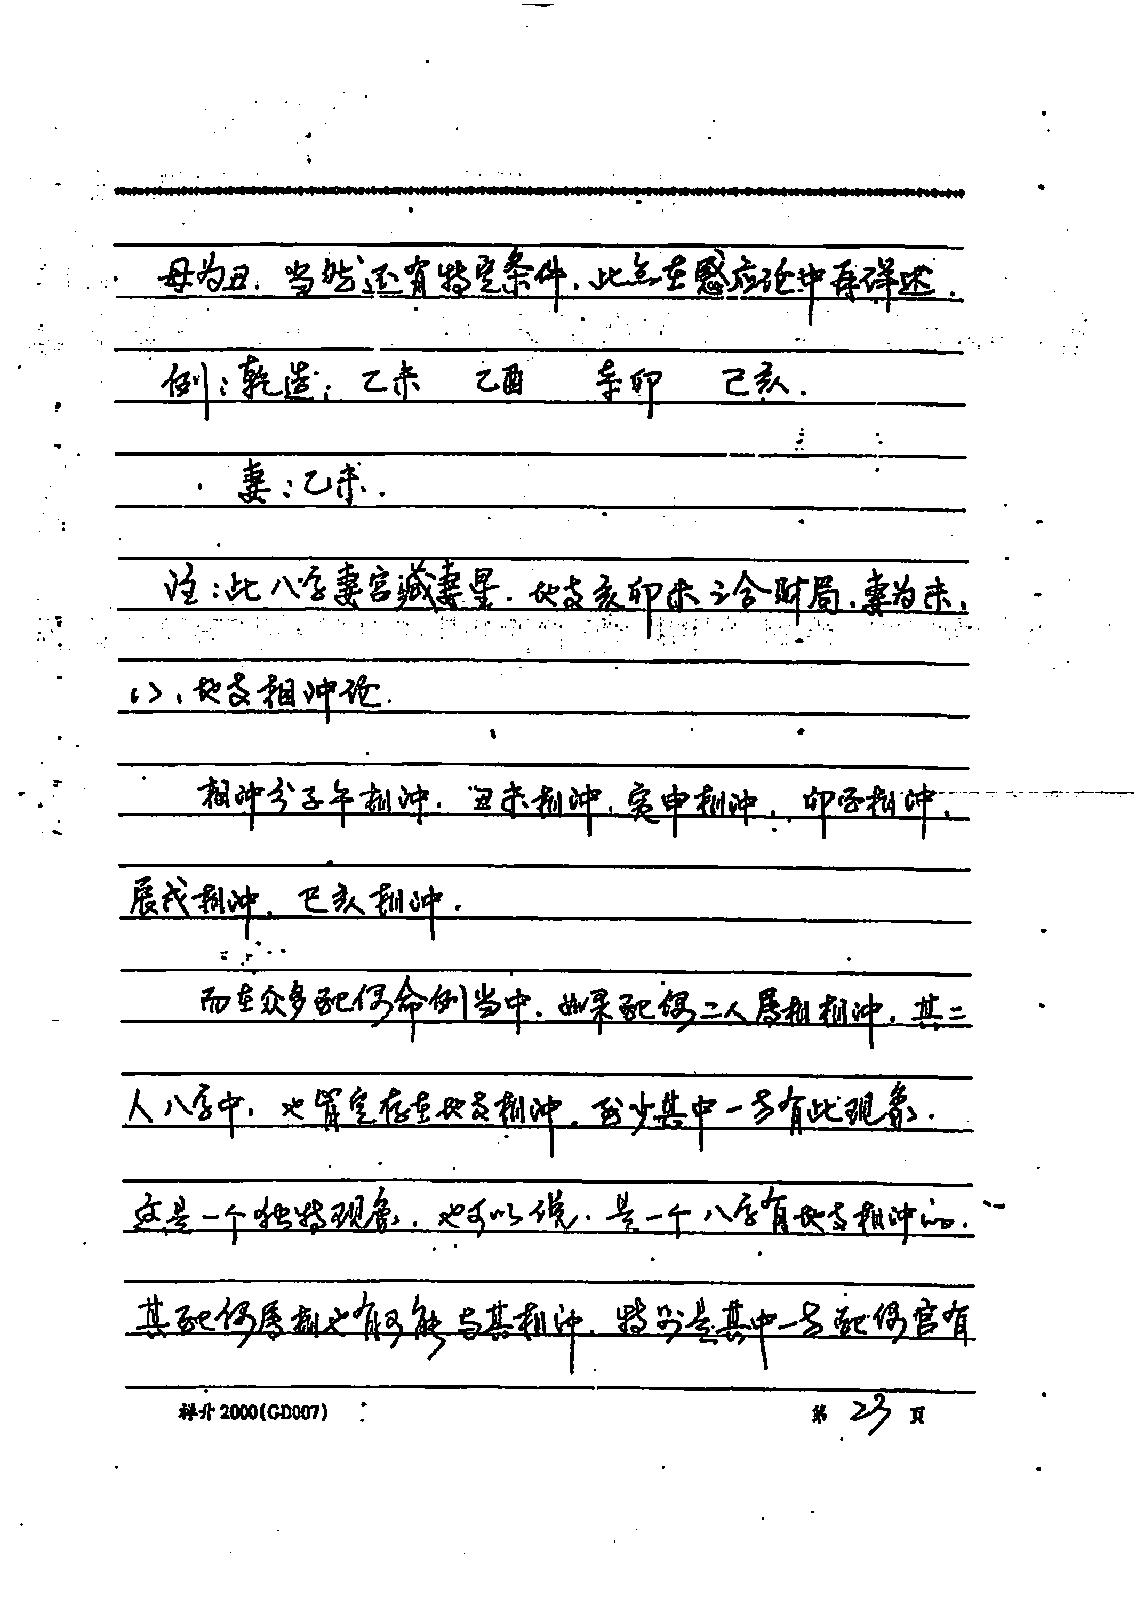 母为丑.当然还有特定条件.此点在感应论中再详述.
例:乾造:乙未 乙酉 辛卯 己亥.
妻:乙未.
注:此八字妻宫藏妻星.地支亥卯未三合财局.妻为未.
<>、地支相冲论.
相冲分子午相冲.丑未相冲,寅申相冲,卯酉相冲,
辰戌相冲,巳亥相冲.
而在众多配偶命例当中.如果配偶二人属相相冲,其二
人八字中,也肯定存在地支相冲.至少其中一方有此现象.
这是一个独特现象.也可以说.是一个八字有地支相冲的.
其配偶属相也有可能与其相冲.特别是其中一方配偶宫有
祥升2000(GD007)
第23页